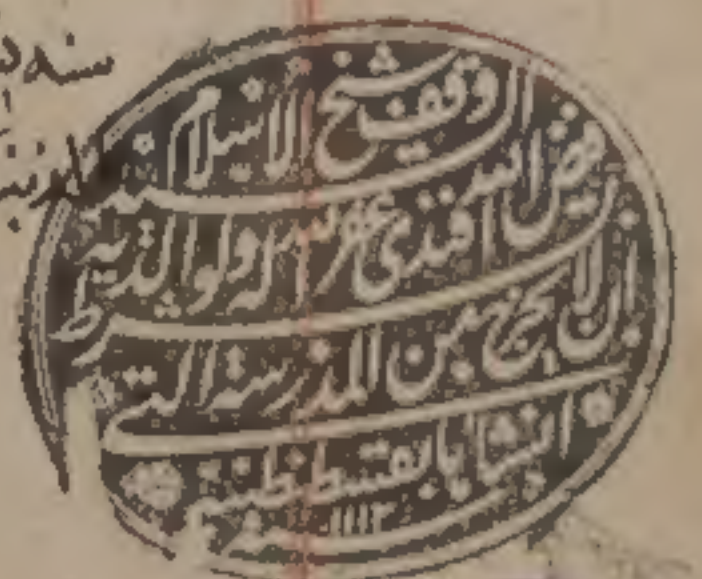 وقف شيخ الإسلام السيد
فيض الله أفندى غفر الله له ولوالديه
بشرط أن لا يخرج من المدرسة التى
أنشأها بقسطنطينية
سنة ١١١٢
سنه